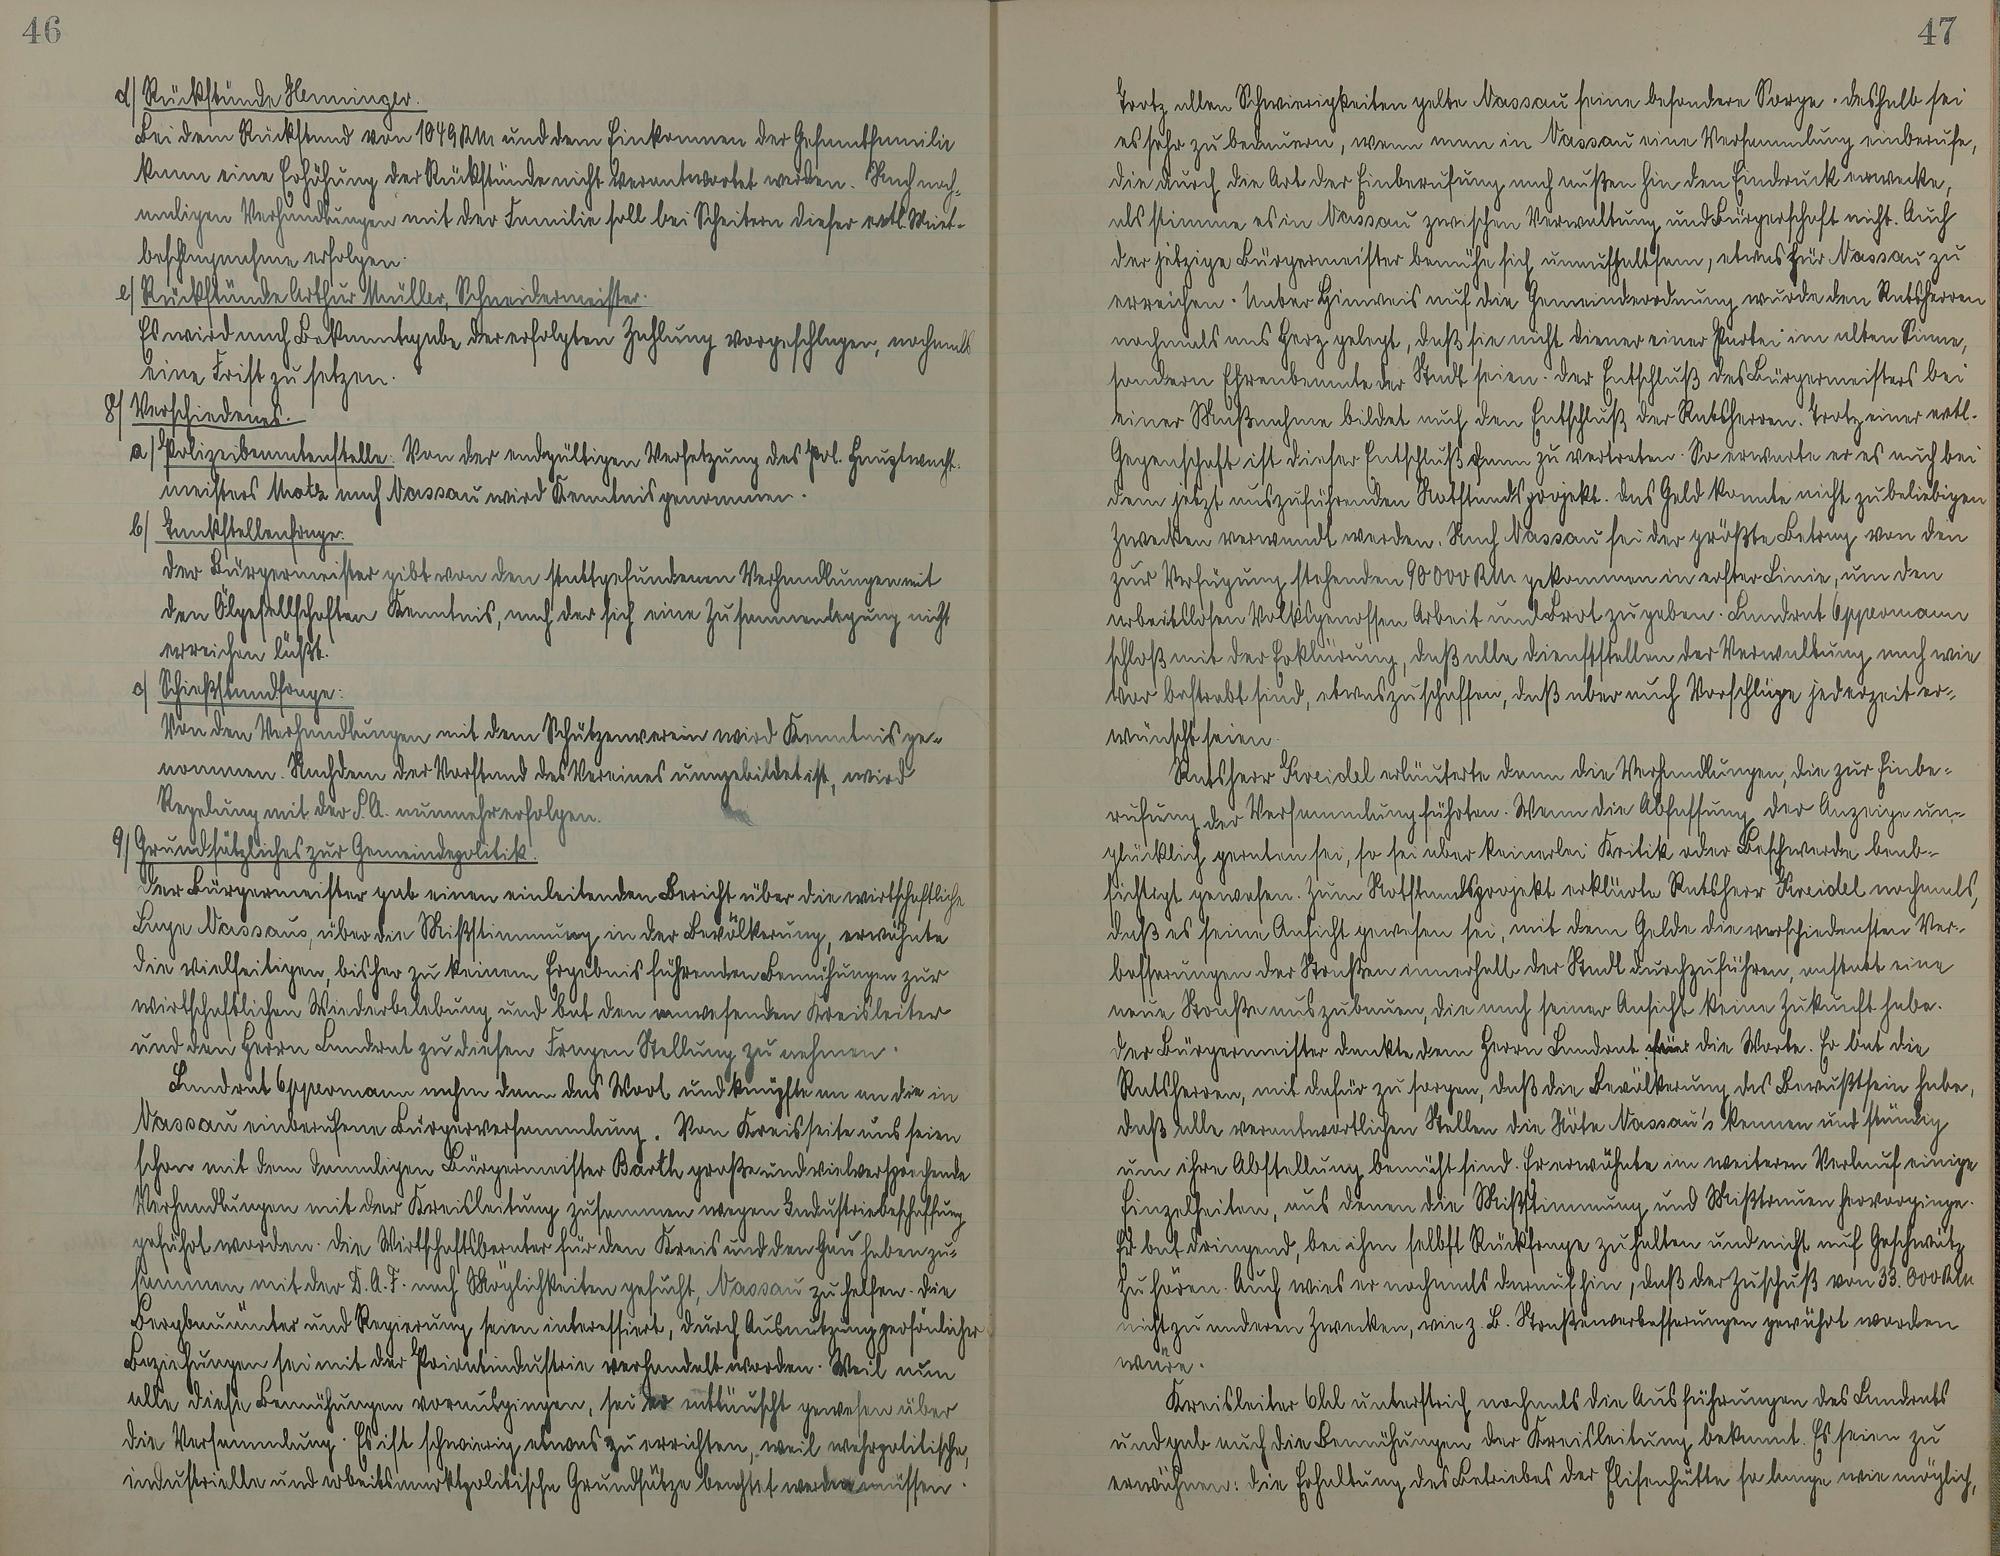 46
d) Rückstände Henninger.
Bei dem Rückstand von 1049 RM und dem Einkommen der Gesamtfamilie
kann eine Erhöhung der Rückstände nicht verantwortet werden. Nach noch-
maligen Verhandlungen mit der Familie soll bei Scheitern dieser evtl. Miet-
beschlagnahme erfolgen.
e) Rückstände Arthur Müller, Schneidermeister.
Es wird nach Bekanntgabe der erfolgten Zahlung vorgeschlagen, nochmals
eine Frist zu setzen.
8) Verschiedenes.
a) Polizeibeamtenstelle: Von der endgültigen Versetzung des Pol. Hauptwacht-
meisters Motz nach Nassau wird Kenntnis genommen.
b) Tankstellenfrage:
Der Bürgermeister gibt von den stattgefundenen Verhandlungen mit
den Ölgesellschaften Kenntnis, nach der sich eine Zusammenlegung nicht
erreichen läßt.
c) Schießstandfrage:
Von den Verhandlungen mit dem Schützenverein wird Kenntnis ge-
nommen. Nachdem der Vorstand des Vereines umgebildet ist, wird
Regelung mit der S.A. nunmehr erfolgen.
9) Grundsätzliches zur Gemeindepolitik.
Der Bürgermeister gab einen einleitenden Bericht über die wirtschaftliche
Lage Nassaus, über die Mißstimmung in der Bevölkerung, erwähnte
die vielseitigen, bisher zu keinem Ergebnis führenden Bemühungen zur
wirtschaftlichen Wiederbelebung und bat den anwesenden Kreisleiter
und den Herrn Landrat zu diesen Fragen Stellung zu nehmen.
Landrat Oppermann nahm dann das Wort und knüpfte an an die in
Nassau einberufene Bürgerversammlung. Von Kreisseite aus seien
schon mit dem damaligen Bürgermeister Barth große und vielversprechende
Verhandlungen mit der Kreisleitung zusammen wegen Industriebeschaffung
geführt worden. Die Wirtschaftsberater für den Kreis und den Gau haben zu-
sammen mit der D.A.F. nach Möglichkeiten gesucht, Nassau zu helfen. Die
Bergbauämter und Regierung seien interessiert, durch Ausnutzung persönlicher
Beziehungen sei mit der Privatindustrie verhandelt worden. Weil nun
alle diese Bemühungen vorausgingen, sei er enttäuscht gewesen über
die Versammlung. Es ist schwierig etwas zu errichten, weil wehrpolitische,
industrielle und arbeitsmarktpolitische Grundsätze beachtet werden müssen.
47
Trotz allen Schwierigkeiten gelte Nassau seine besondere Sorge. Deshalb sei
es sehr zu bedauern, wenn man in Nassau eine Versammlung einberufe,
die durch die Art der Einberufung nach außen hin den Eindruck erwecke,
als stimme es in Nassau zwischen Verwaltung und Bürgerschaft nicht. Auch
der jetzige Bürgermeister bemühe sich unaufhaltsam, etwas für Nassau zu
erreichen. Unter Hinweis auf die Gemeindeordnung wurde den Ratsherren
nochmals ans Herz gelegt, daß sie nicht Diener einer Partei im alten Sinne,
sondern Ehrenbeamte der Stadt seien. Der Entschluß des Bürgermeisters bei
einer Maßnahme bildet auch den Entschluß der Ratsherren. Trotz einer evtl.
Gegenschaft ist dieser Entschluß dann zu vertreten. So erwarte er es auch bei
dem jetzt auszuführenden Notstandsprojekt. Das Geld konnte nicht zu beliebigen
Zwecken verwandt werden. Nach Nassau sei der größte Betrag von den
zur Verfügung stehenden 90 000 RM gekommen in erster Linie, um den
arbeitslosen Volksgenossen Arbeit und Brot zu geben. Landrat Oppermann
schloß mit der Erklärung, daß alle Dienststellen der Verwaltung nach wie
vor bestrebt sind, etwas zu schaffen, daß aber auch Vorschläge jederzeit er-
wünscht seien.
Ratsherr Kreidel erläuterte dann die Verhandlungen, die zur Einbe-
rufung der Versammlung führten. Wenn die Abfassung der Anzeige un-
glücklich geraten sei, so sei aber keinerlei Kritik oder Beschwerde beab-
sichtigt gewesen. Zum Notstandsprojekt erklärte Ratsherr Kreidel nochmals,
daß es seine Ansicht gewesen sei, mit dem Gelde die verschiedensten Ver-
besserungen der Straßen innerhalb der Stadt durchzuführen, anstatt eine
neue Straße auszubauen, die nach seiner Ansicht keine Zukunft habe.
Der Bürgermeister dankte dem Herrn Landrat für die Worte. Er bat die
Ratsherren, mit dafür zu sorgen, daß die Bevölkerung das Bewußtsein habe,
daß alle verantwortlichen Stellen die Nöte Nassau's kennen und ständig
um ihre Abstellung bemüht sind. Er erwähnte im weiteren Verlauf einige
Einzelheiten, aus denen die Mißstimmung und Mißtrauen hervorginge.
Er bat dringend, bei ihm selbst Rückfrage zu halten und nicht auf Geschwätz
zu hören. Auch wies er nochmals darauf hin, daß der Zuschuß von 33.000 RM
nicht zu anderen Zwecken, wie z. B. Straßenverbesserungen gewährt worden
wäre.
Kreisleiter Ohl unterstrich nochmals die Ausführungen des Landrats
und gab auch die Bemühungen der Kreisleitung bekannt. Es seien zu
erwähnen: die Erhaltung des Betriebes der Elisenhütte so lange wie möglich,